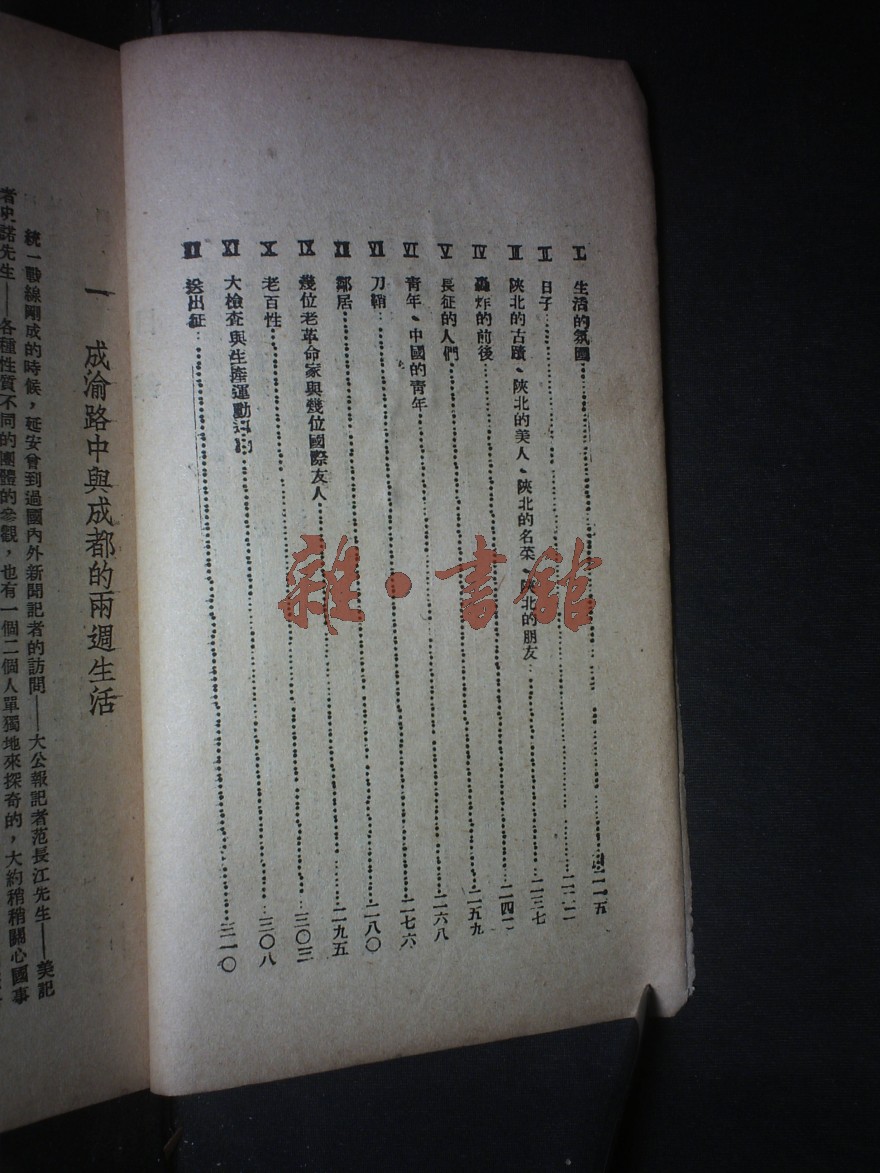 I 生活的氛圍 二一五
II 日子 二二二
III 陝北的古蹟、陝北的美人、陝北的名菜、陝北的朋友 二三七
IV 轟炸的前後 二四二
V 長征的人們 二五九
VI 青年、中國的青年 二六八
VII 刀鞘 二七六
VIII 鄰居 二八〇
IX 幾位老革命家與幾位國際友人 二九五
X 老百性 三〇三
XI 大檢查與生產運動 三〇八
XII 送出征 三一〇
一 成渝路中與成都的兩週生活
統一戰線剛成的時候，延安曾到過國內外新聞記者的訪問——大公報記者范長江先生——美記
者史諾先生——各種性質不同的團體的參觀，也有一個二個人單獨地來探奇的，大約稍稍關心國事
雜·書館